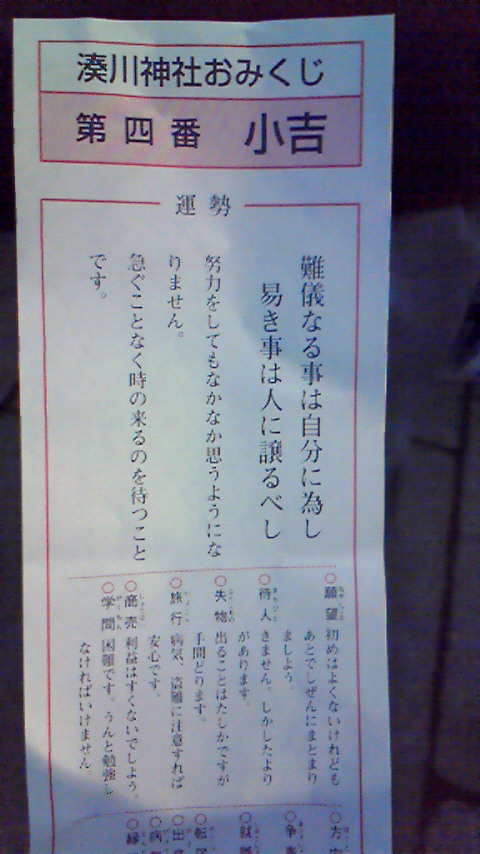 湊川神社おみくじ
第四番 小吉
運勢
難儀なる事は自分に為し
易き事は人に譲るべし
努力をしてもなかなか思うようにな
りません。
急ぐことなく時の来るのを待つこと
です。
○願望 初めはよくないけれども
あとでしぜんにまとまり
ましよう。
○待人 きません。しかしたより
があります。
○失物 出ることはたしかですが
手間どります。
○旅行 病気、盗難に注意すれば
安心です。
○商売 利益はすくないでしよう。
○学問 困難です。うんと勉強し
なければいけません。
○方
○争
○就
○転
○出
○病
○縁